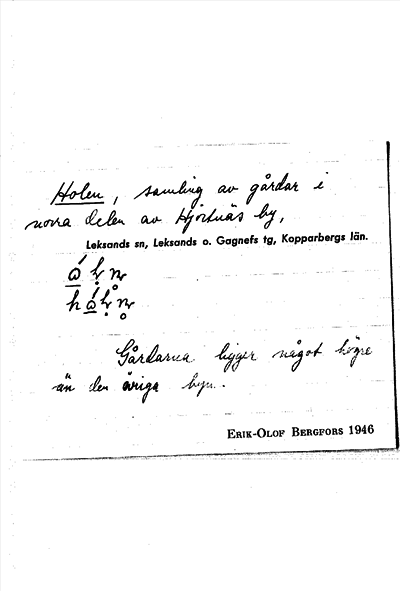 Holen, samling av gårdar i
norra delen av Hjortnäs by,
Leksands sn, Leksands o. Gagnefs tg, Kopparbergs län.
Gårdarna ligger något högre
än den övriga byn.
ERIK-OLOF BERGFORS 1946